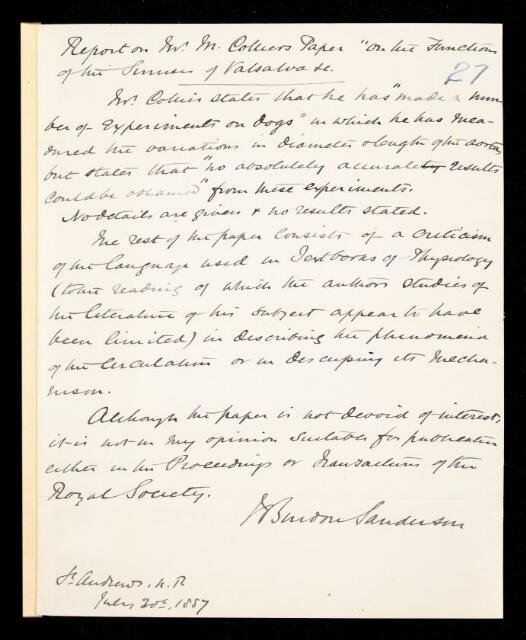 Report on Mr. M. Colliers Paper "On the Functions
of the Sinuses of Valsalva &c.
27
Mr. Collier states that he has "made a num
ber of experiments on dogs" in which he has mea-
sured the variations in diameter & length of the aorta,
but states that "no absolutely accurate results
could be obtained" from these experiments.
No details are given & no results stated.
The rest of the paper consists of a criticism
of the language used in Textbooks of Physiology
(to the reading of which the author's studies of
the literature of his subject appear to have
been limited) in describing the phenomena
of the Circulation or in discussing its mecha-
nism.
Although the paper is not devoid of interest,
it is not in my opinion suitable for publication
either in the Proceedings or Transactions of the
Royal Society.
J Burdon Sanderson
St. Andrews, N.B
July 30th, 1887